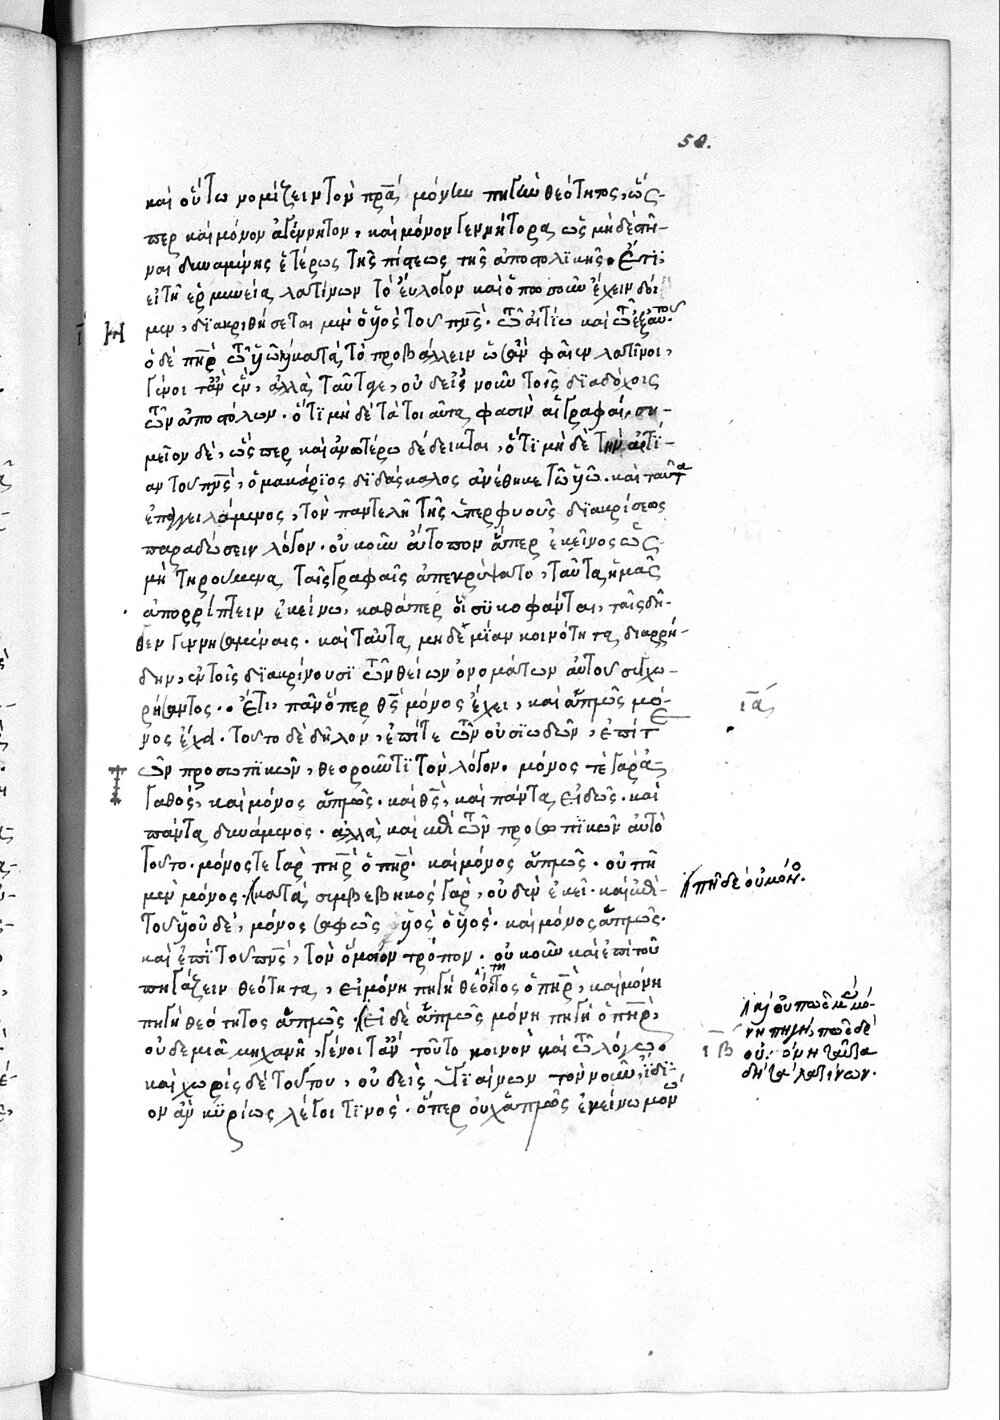 58.
καὶ οὕτω νομίζειν τὸν πρα μόνην πηγὴν θεότητος, ὥς-
περ καὶ μόνον ἀγέννητον, καὶ μόνον γεννήτορα ὡς μηδὲ πη-
ναι δυναμένης ἑτέρως τῆς πίστεως τῆς ἀποστολϊκῆς. Ἔτι,
εἰ τῇ ἑρμηνεία λατίνων τὸ εὔλογον καὶ ὁπωσοῦν ἔχειν δοί
μεν, διακριθήσεται μὲν ὁ ϋς τοῦ πρς. τῶ αἰτίω καὶ τῶ ἐξ αυτου
ὁ δὲ πηρ τῶ κατὰ τὸ προβάλλειν φασιν λατῖνοι,
γένοιτ' ἂν, ἀλλὰ ταῦτά γε, οὐδεὶς νοῦν τοῖς διαδόχοις
τῶν ἀποστόλων. ὅτι μηδὲ φασὶν αἱ γραφαὶ, ση-
μεῖον δὲ, ὥςπερ καὶ ἀνωτέρω δέδεικται, ὅτι μὴ δὲ τὴν αἰτί-
αν τοῦ πρς, ὁ μακάριος διδάσκαλος ἀνέθηκε τῶ ϋῶ. καὶ ταῦτα
ἐπαγγειλάμενος, τὸν παντελῆ τῆς ὑπερφυοῦς διακρίσεως
παραδώσειν λόγον. οὐκοῦν ἄτοπον ἅπερ ἐκεῖνος ὡς
μὴ τηρούμενα ταῖς γραφαῖς ἀπεκρύψατο, ταῦτα ἡμᾶς
ἀπορρίπτειν ἐκείνω, καθάπερ οἱ συκοφάνται, ταῖς δῆ-
θεν γεννησαμέναις. καὶ ταῦτα μηδὲ μίαν κοινότητα διαρρή-
δην, ἐν τοῖς διακρίνουσι τῶν θείων ὀνομάτων αὐτοῦ συγχω-
ρήσαντος. Ἔτι, πᾶν ὅπερ θς μόνος ἔχει, καὶ ἁπλῶς μό-
νος ἔχει. τοῦτο δὲ δῆλον, ἐπί τε τῶν οὐσιωδῶν, ἐπί τ
τῶν προσωπικῶν, θεωροῦντι τὸν λόγον. μόνος τὲ γὰρ ἀ-
γαθὸς, καὶ μόνος ἁπλῶς. καὶ θς, καὶ πάντα εἰδὼς. καὶ
πάντα δυνάμενος. ἀλλὰ καὶ ἐπὶ τῶν προσωπικῶν αὐτὸ
τοῦτο. μόνος τε γὰρ πηρ ὁ πηρ. καὶ μόνος ἁπλῶς. οὐ πη
μὲν μόνος. κατὰ συμβεβηκὸς γὰρ, οὐδὲν ἐκεῖ. καὶ ἐπὶ
τοῦ ϋοῦ δὲ, μόνος σαφῶς ϋὸς ὁ ϋὸς. καὶ μόνος ἁπλῶς.
καὶ ἐπὶ τοῦ πνς, τὸν ὅμοιον τρόπον. οὐκοῦν καὶ ἐπὶ τοῦ
πηγάζειν θεότητα, εἰ μόνη πηγὴ θεότητος ὁ πηρ, καὶ μόνη
πηγὴ θεότητος ἁπλῶς. εἰ δὲ ἁπλῶς μόνη πηγὴ ὁ πηρ,
οὐδεμία μηχανὴ, γένοιτ' ἂν τοῦτο κοινὸν καὶ τῶ λόγω.
καὶ χωρὶς δὲ τούτου, οὐδεὶς ὅστις αἰνων τὸν νοῦν, ἴδι-
ον ἂν κυρίως λέγοι τινὸς. ὅπερ οὐχ ἁπλῶς ἐκείνω μόν
ιά
πῆ δὲ οὐ μόνος.
καὶ οὐ πῶς μὲν μό-
νη πηγὴ, πῶς δὲ
ιβ οὐ.
λατίνων.